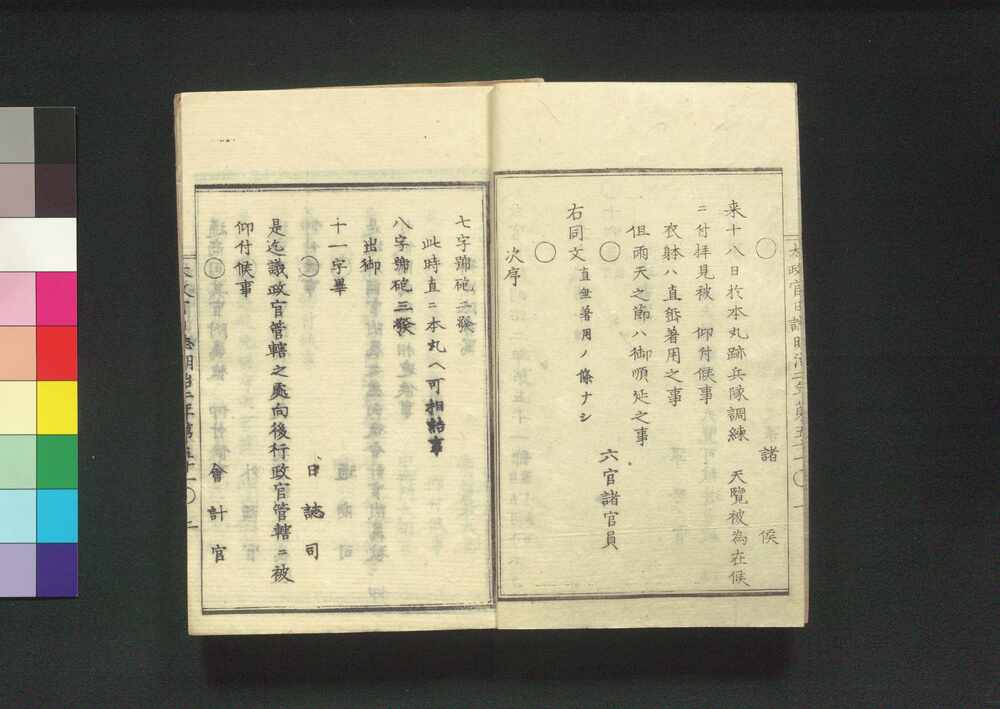 ○ 諸侯
来十八日於本丸跡兵隊調練 天覧被為在候
ニ付拝見被 仰付候事
衣躰ハ直垂著用之事
但雨天之節ハ御順延之事
○ 六官諸官員
右同文直垂著用ノ條ナシ
○
次序
七字號砲二發
此時直ニ本丸ヘ可相詰事
八字號砲三發
出御
十一字畢
○ 日誌司
是迄議政官管轄之處向後行政官管轄ニ被
仰付候事
○ 會計官